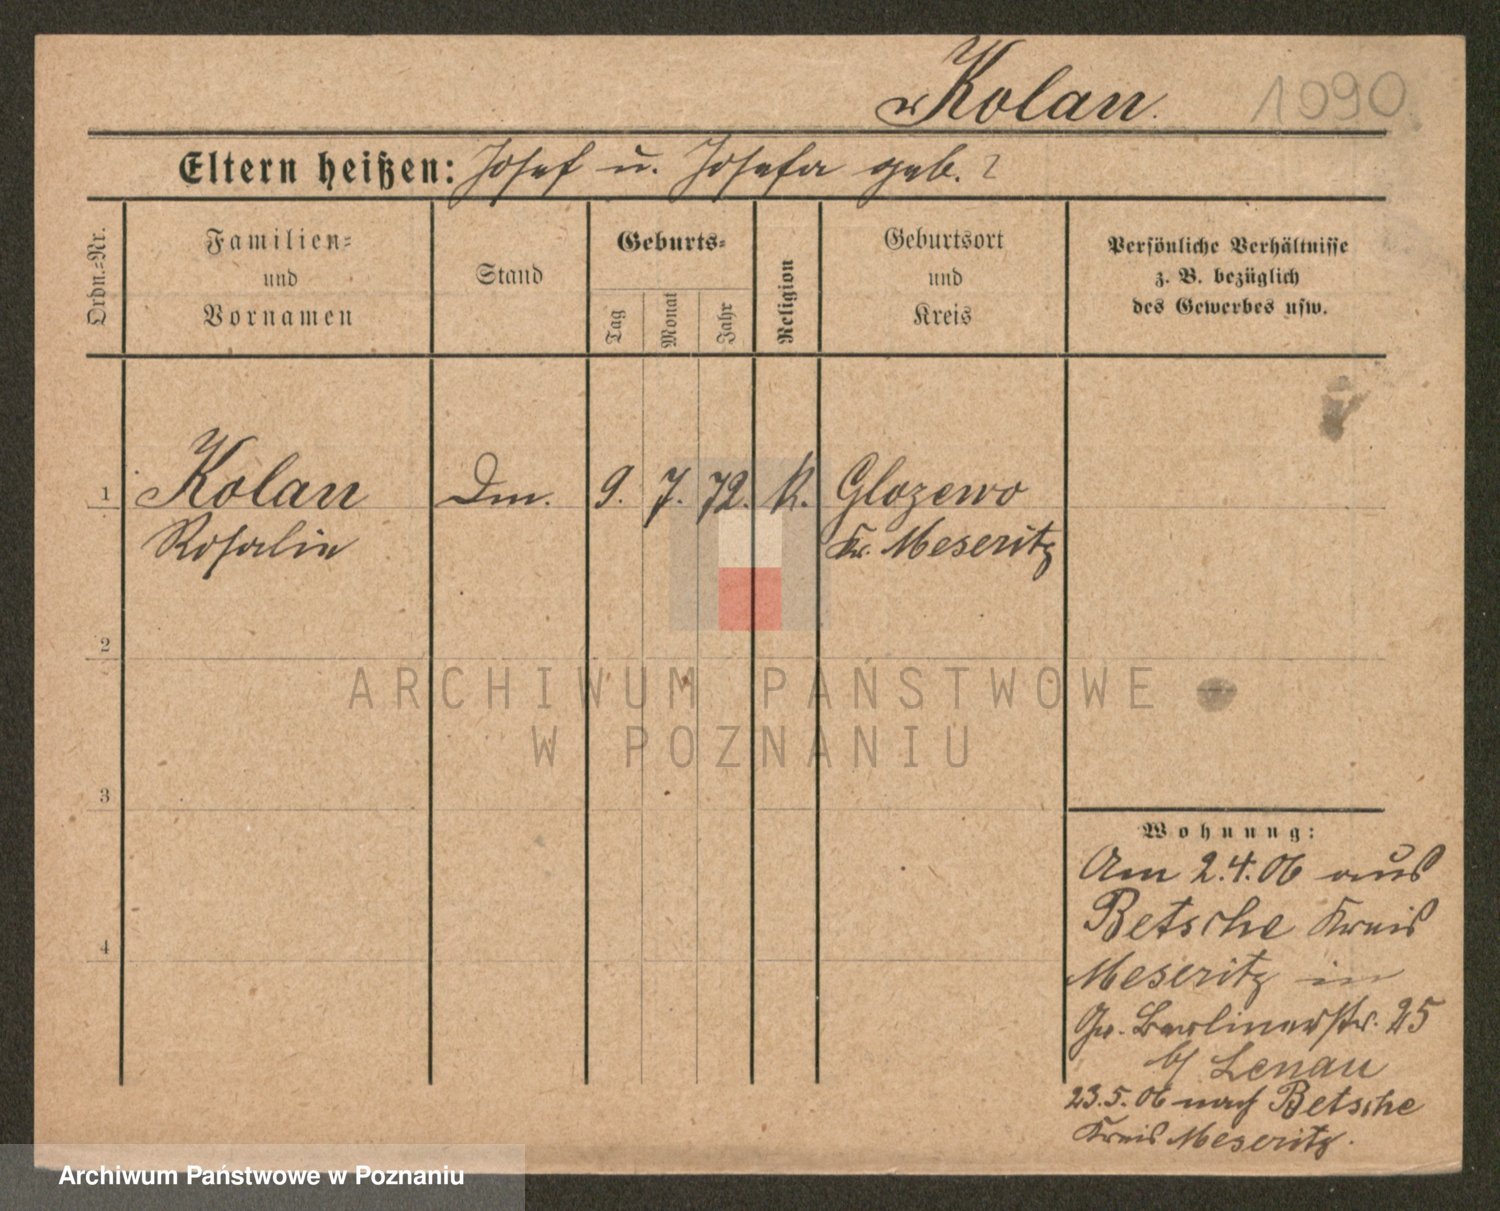 Kolan.
1090
Eltern heißen: Josef u. Josefa geb. ?
Ordn.-Nr.
Familien-
und
Vornamen
Stand
Geburts-
Tag
Monat
Jahr
Religion
Geburtsort
und
Kreis
Persönliche Verhältnisse
z. B. bezüglich
des Gewerbes usw.
1
Kolan
Rosalie
Dm.
9. 7. 72.
K.
Glozewo
Kr. Meseritz
2
3
4
Wohnung:
Am 2.4.06 aus
Betsche Kreis
Meseritz in
Gr. Berlinerstr. 25
b/ Lenau
23.5.06 nach Betsche
Kreis Meseritz.
ARCHIWUM PAŃSTWOWE
W POZNANIU
Archiwum Państwowe w Poznaniu